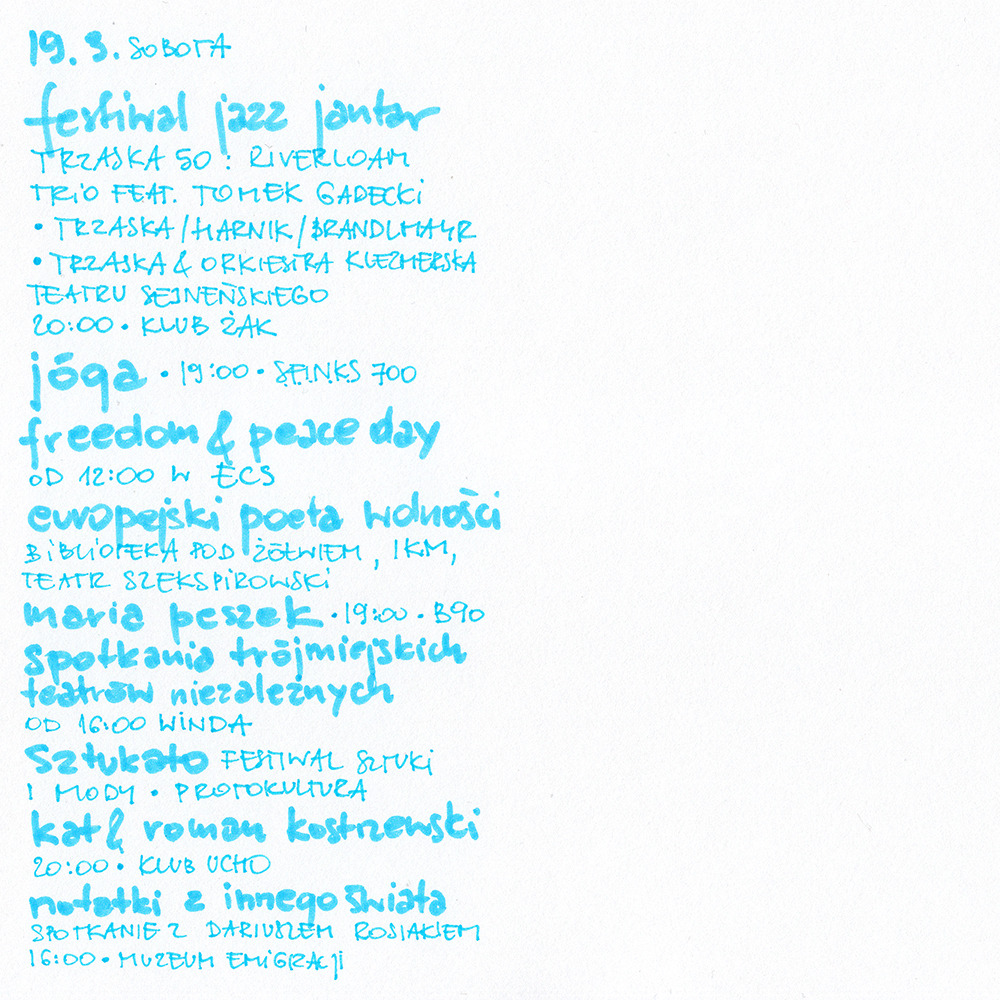 19.3. SOBOTA
festiwal jazz jantar
TRZASKA 50 : RIVERLOAM
TRiO FEAT. TOMEK GADECKi
• TRZASKA/HARNIK/BRANDLMAYR
• TRZASKA & ORKIESTRA KLEZMERSKA
TEATRU SEJNEŃSKIEGO
20:00 • KLUB ŻAK
jóga • 19:00 • SFINKS 700
freedom & peace day
OD 12:00 W ECS
europejski poeta wolności
BiBLiOTEKA POD ŻÓŁWIEM, IKM,
TEATR SZEKSPiROWSKi
maria peszek • 19:00 • B90
spotkania trójmiejskich
teatrów niezależnych
OD 16:00 WiNDA
sztukato FESTIWAL SZTUKi
I MODY • PROTOKULTURA
kat & roman kostrzewski
20:00 • KLUB UCHO
notatki z innego świata
SPOTKANIE Z DARIUSZEM ROSIAKIEM
16:00 • MUZEUM EMiGRACji